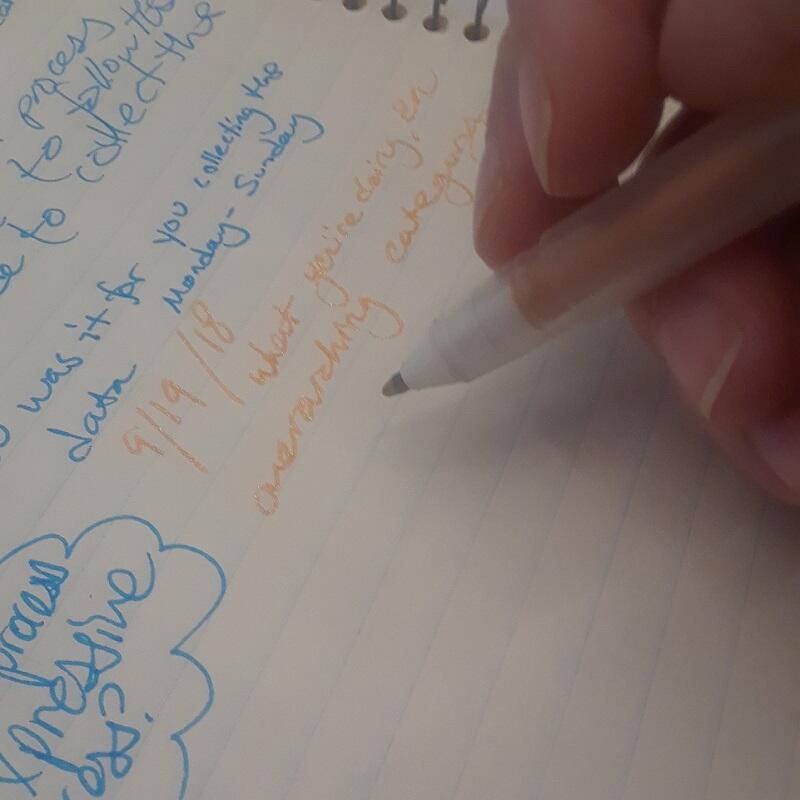 process
to follow the
to collect the
was it for you collecting this
data Monday - Sunday
9/19/18
what you're doing, en
overarching category
process
xpressive
ess?